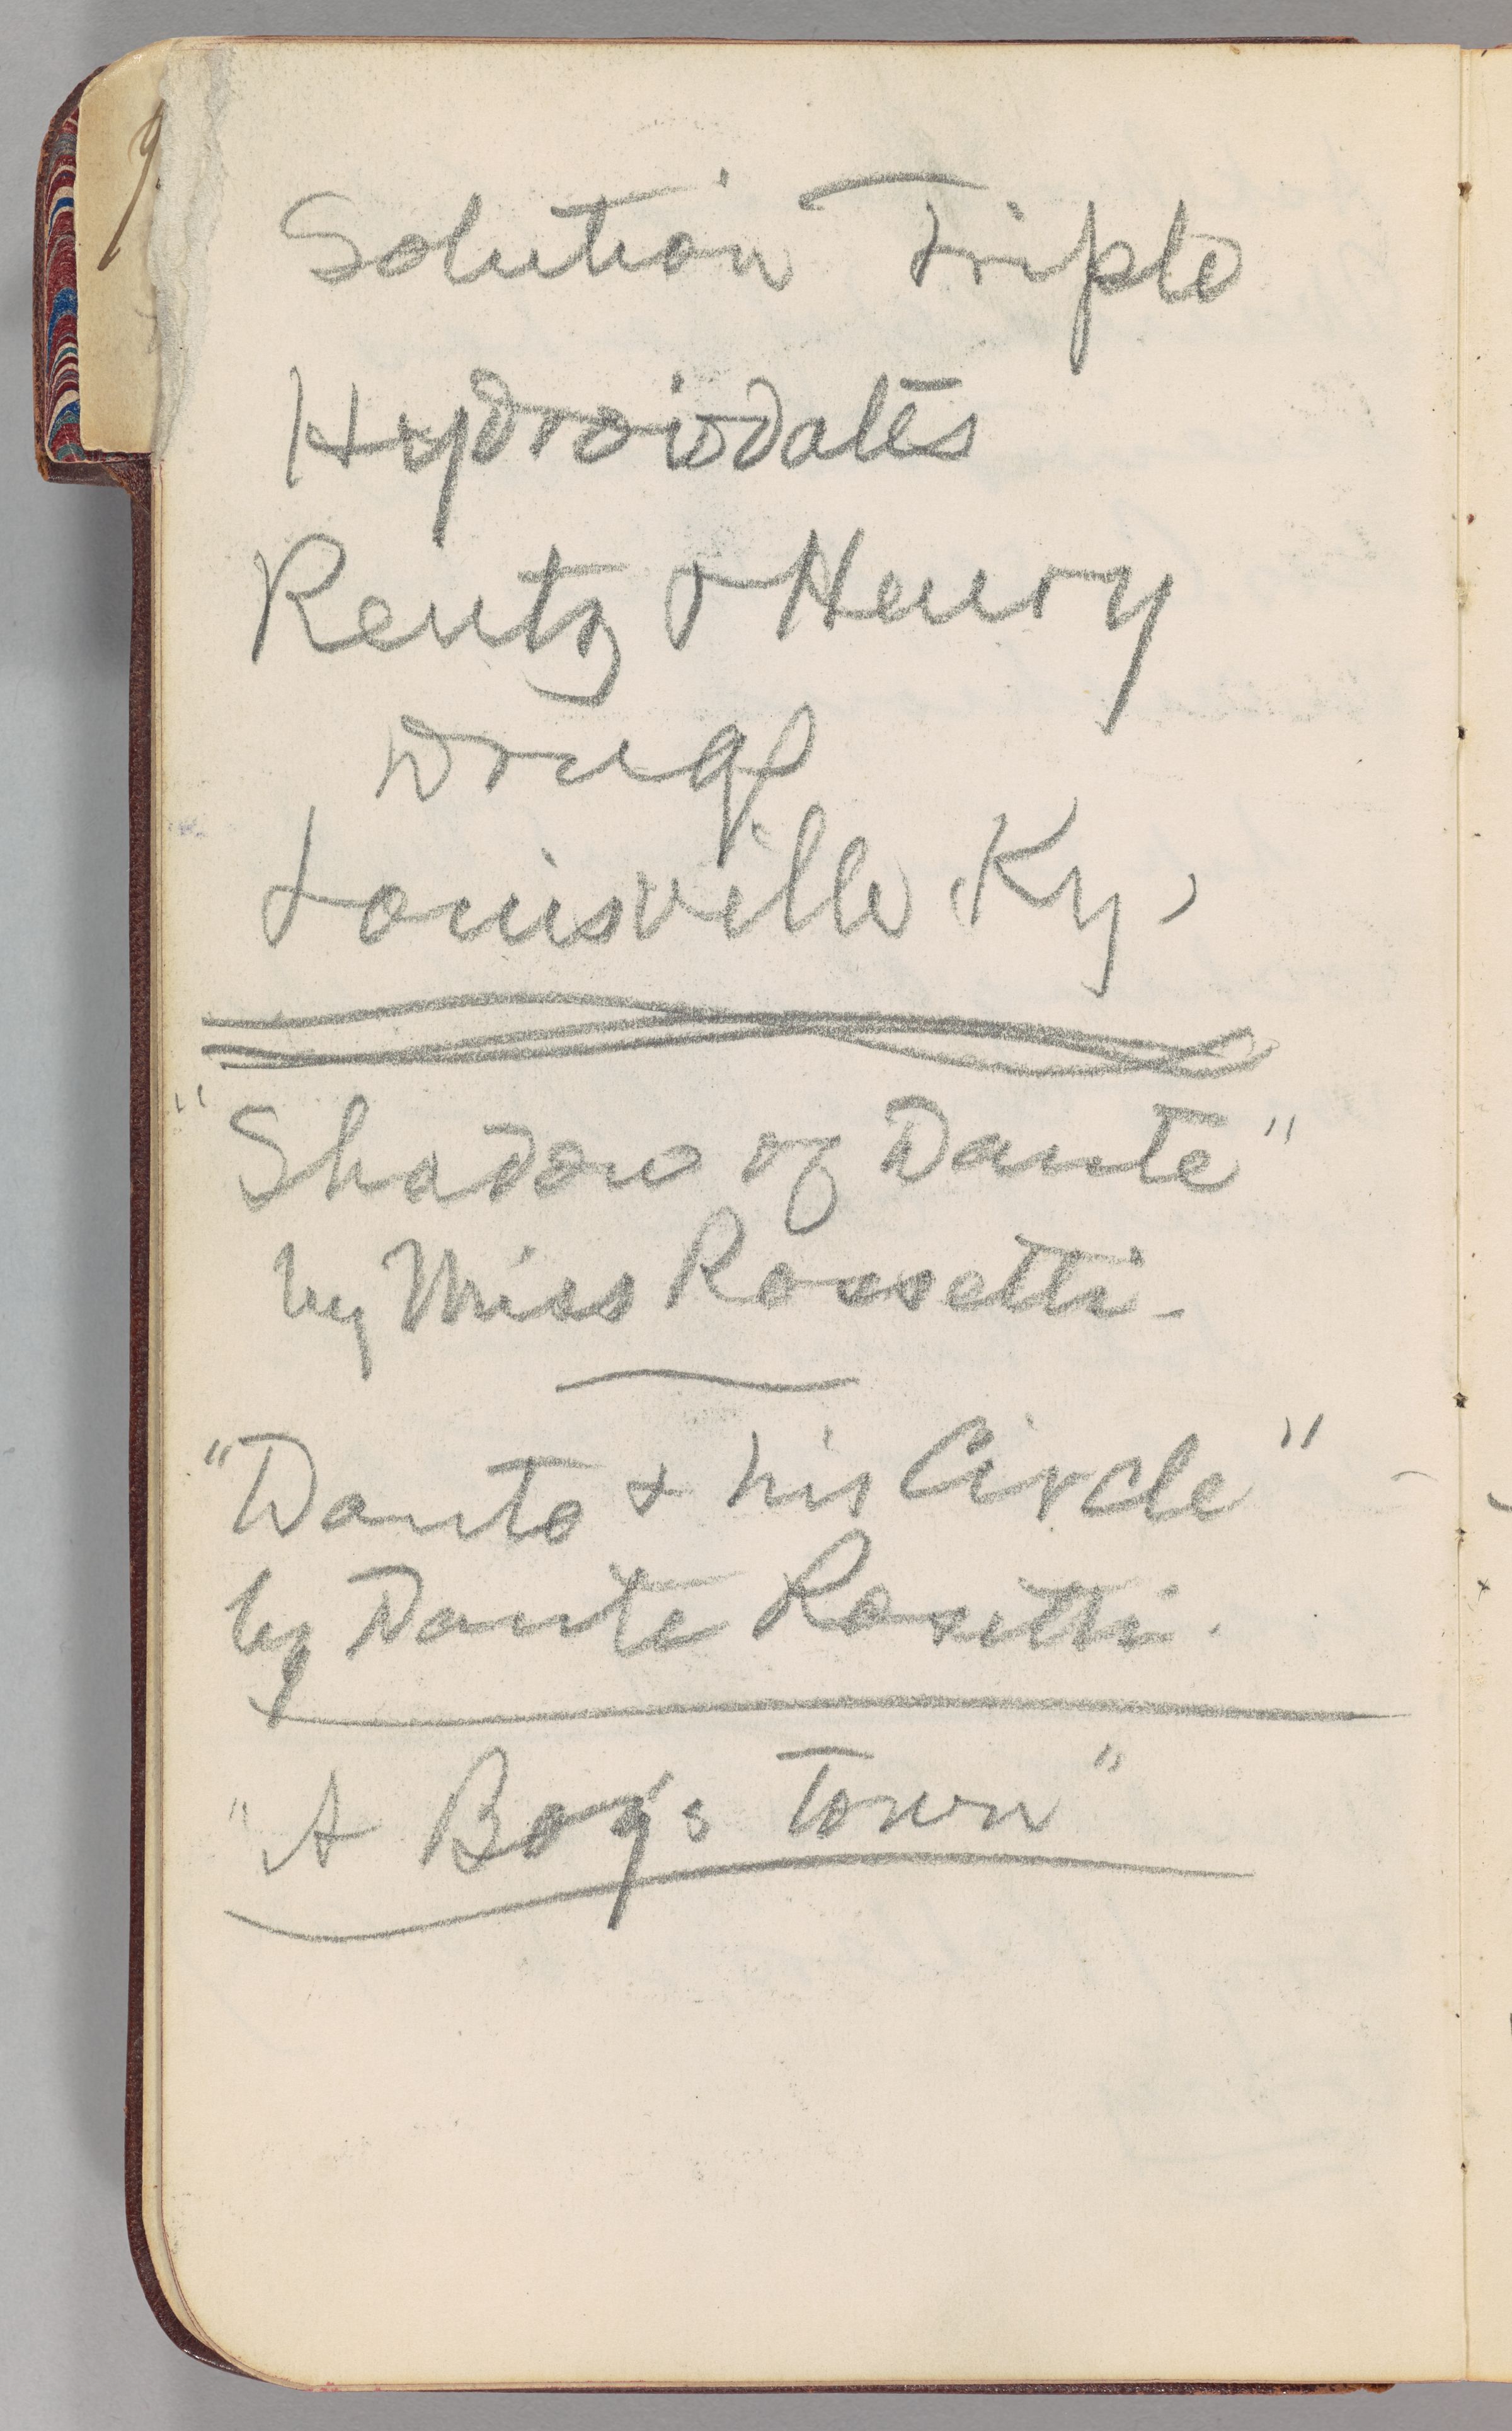 9
Solution Triple
Hydroiodates
Rentz & Henry
Drugs
Louisville, Ky,
"Shadow of Dante"
by Miss Rossetti -
"Dante + his Circle"
by Dante Rosetti.
"A Boy's Town"